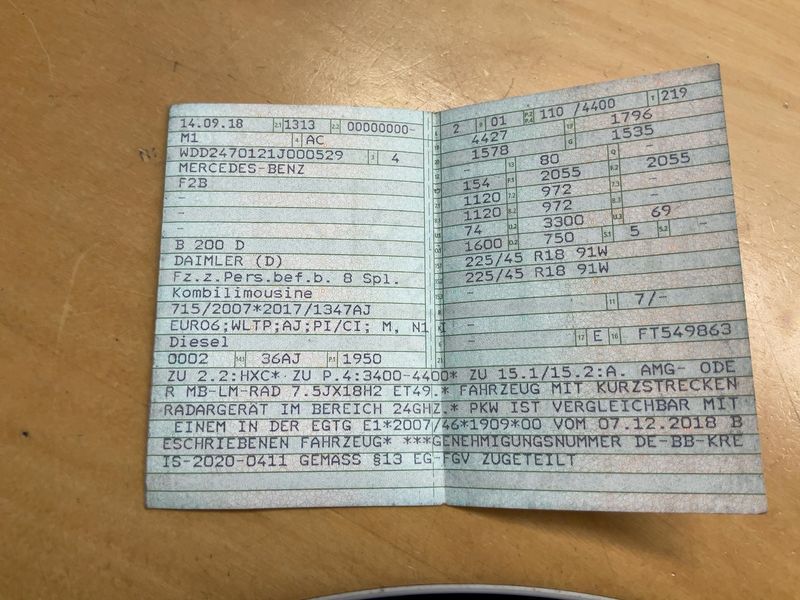 14.09.18 2.1 1313 2.2 00000000-
M1 4 AC
WDD2470121J000529 3 4
MERCEDES-BENZ
F2B
-
-
-
B 200 D
DAIMLER (D)
Fz.z.Pers.bef.b. 8 Spl.
Kombilimousine
715/2007*2017/1347AJ
EURO6;WLTP;AJ;PI/CI; M, N1 I
Diesel
0002 14.1 36AJ P.1 1950
2 9 01 P.2 P.4 110 /4400 T 219
4427 1796
1578 G 1535
- 13 80 Q -
154 F.1 2055 F.2 2055
1120 7.2 972 7.3 -
1120 8.2 972 8.3 -
74 U.2 3300 U.3 69
1600 O.2 750 S.1 5 S.2 -
225/45 R18 91W
225/45 R18 91W
-
- 11 7/-
-
- 17 E 16 FT549863
ZU 2.2:HXC* ZU P.4:3400-4400* ZU 15.1/15.2:A. AMG- ODE
R MB-LM-RAD 7.5JX18H2 ET49.* FAHRZEUG MIT KURZSTRECKEN
RADARGERÄT IM BEREICH 24GHZ.* PKW IST VERGLEICHBAR MIT
EINEM IN DER EGTG E1*2007/46*1909*00 VOM 07.12.2018 B
ESCHRIEBENEN FAHRZEUG* ***GENEHMIGUNGSNUMMER DE-BB-KRE
IS-2020-0411 GEMÄSS §13 EG-FGV ZUGETEILT